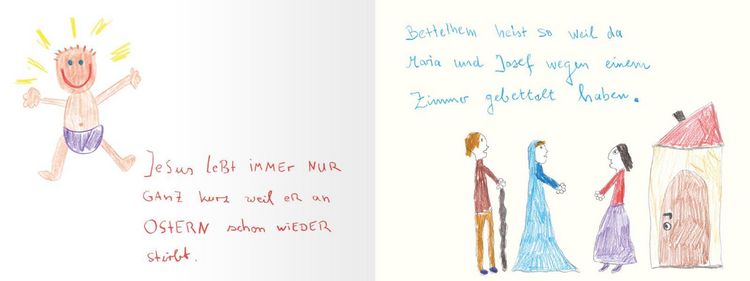 JeSus lebt iMMEr NUR
GANZ kurz weil eR an
OStERN schon wiEDER
stirbt.
Bettelhem heist so weil da
Maria und Josef wegen einem
Zimmer gebettalt haben.